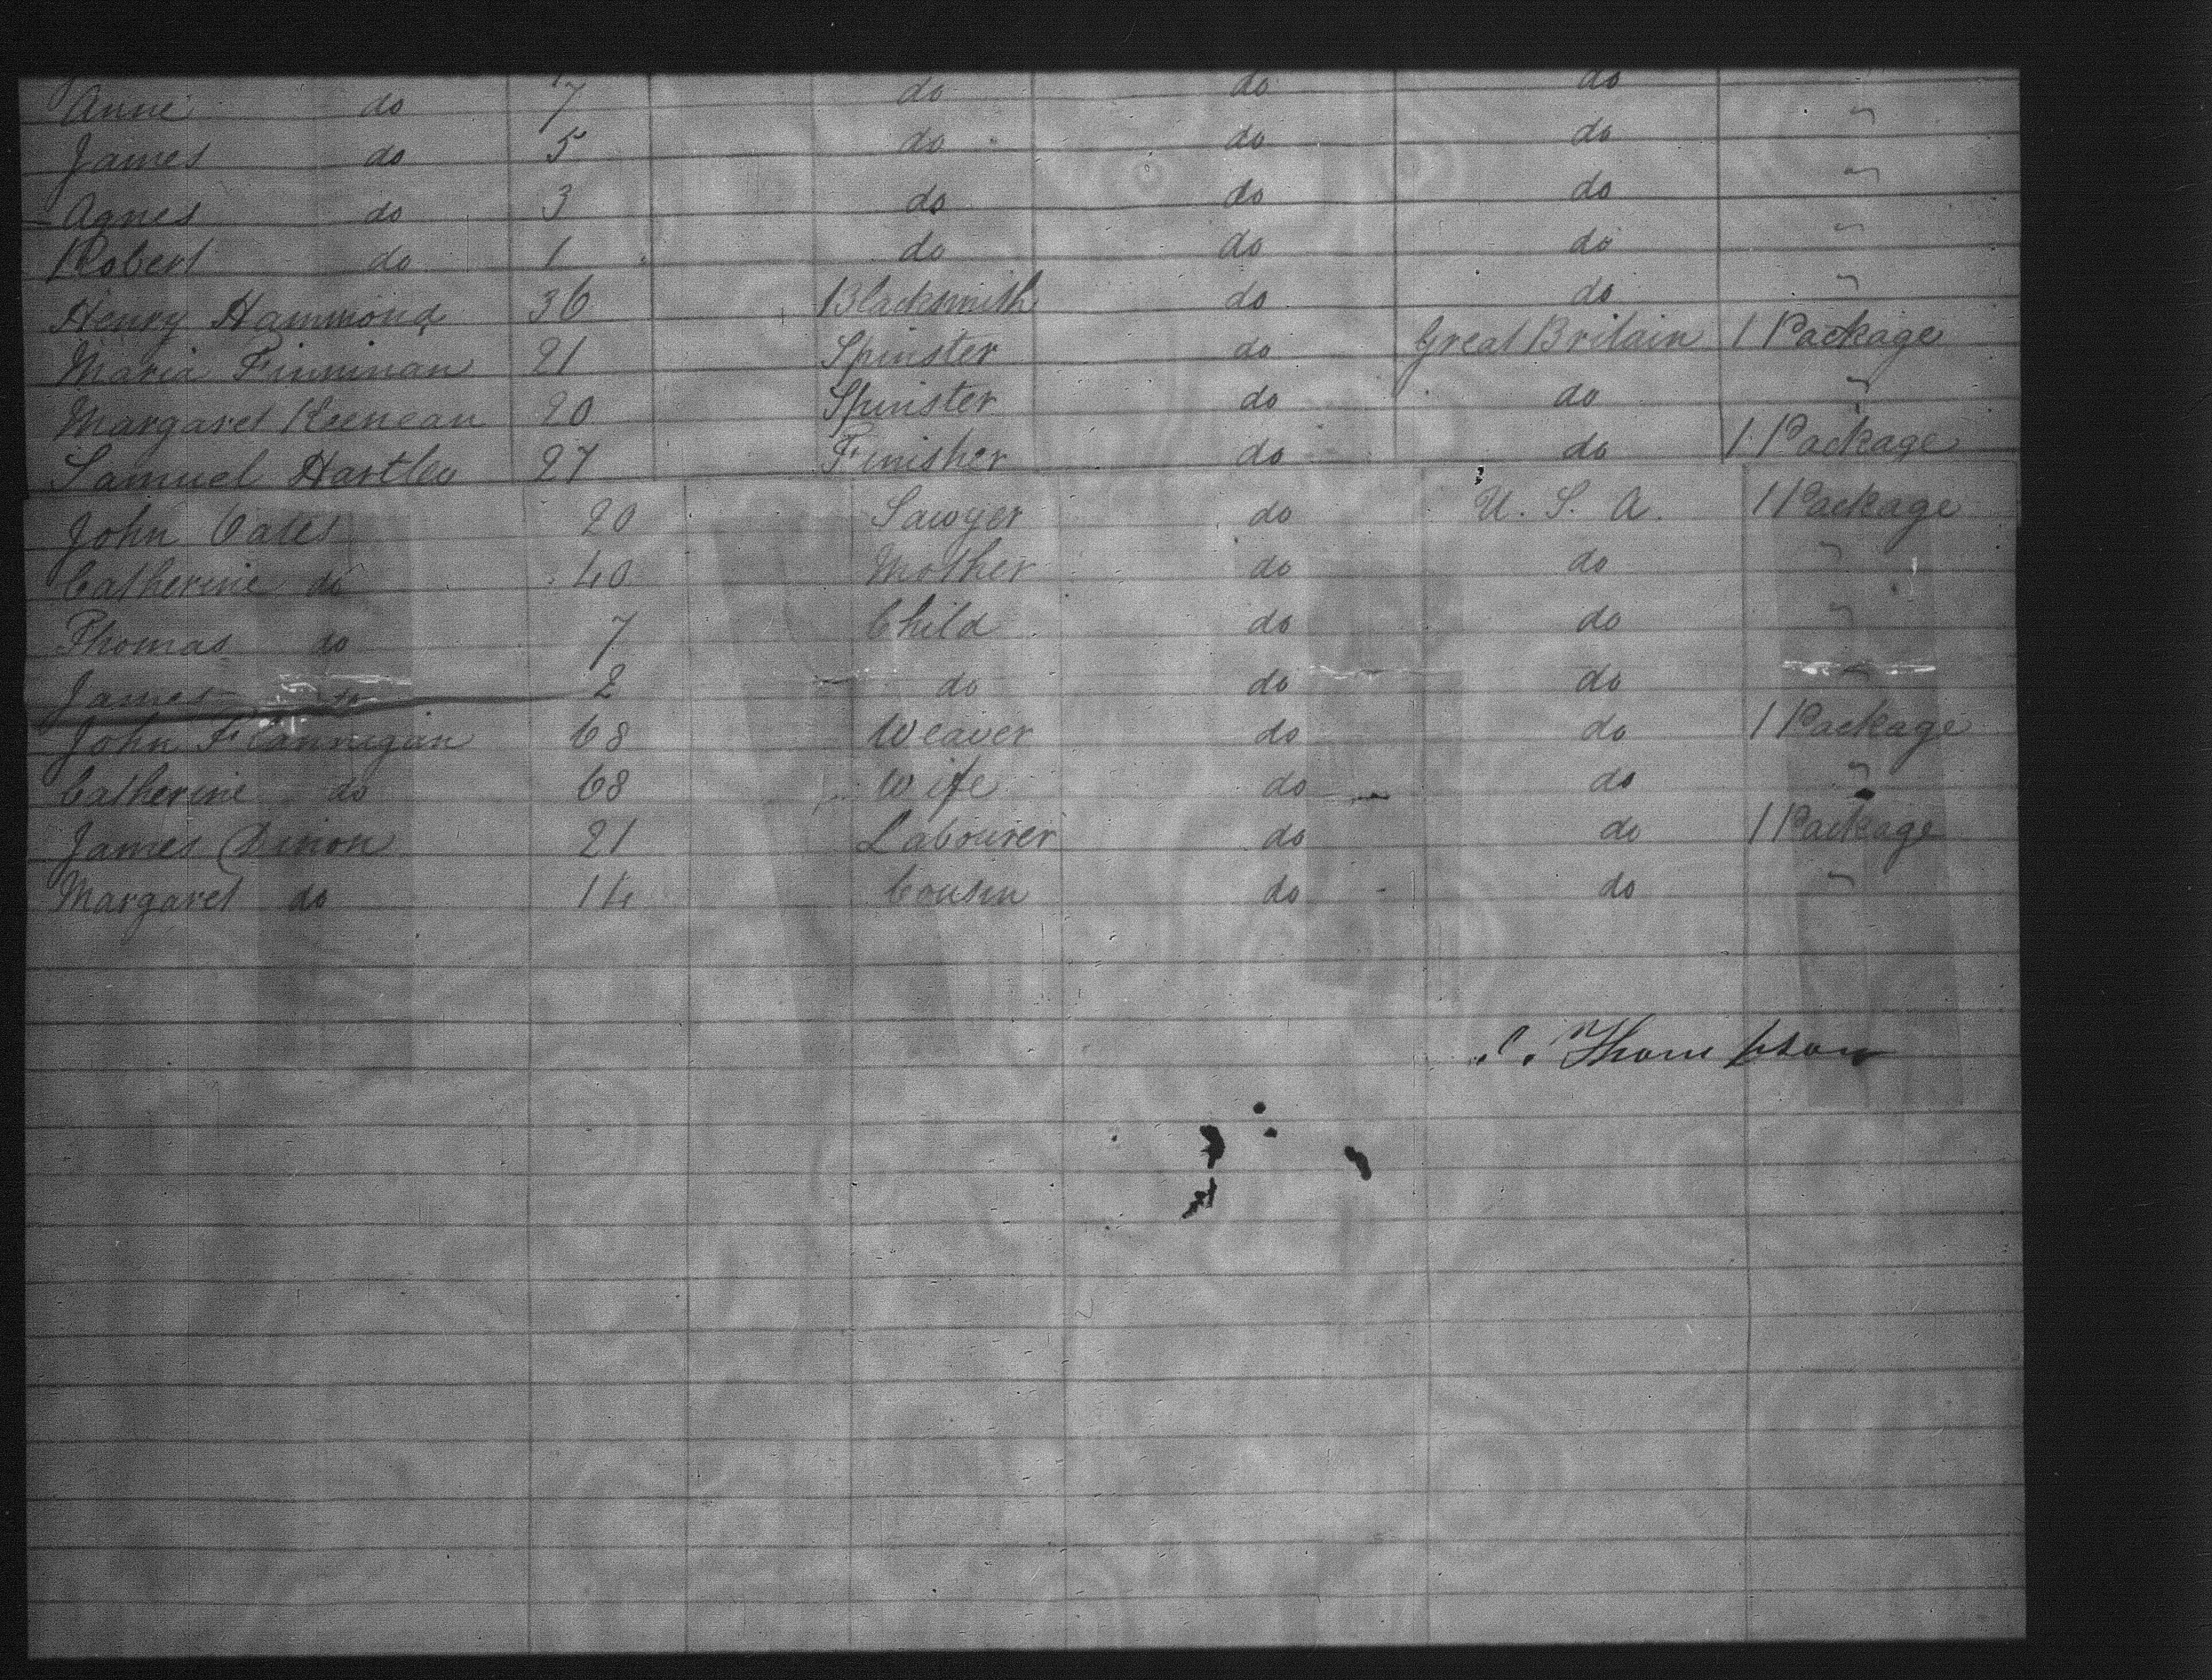 Anne do 7 do do do
James do 5 do do do "
Agnes do 3 do do do "
Robert do 1 do do do "
Henry Hammond 36 Blacksmith do do "
Maria Finninan 21 Spinster do Great Britain 1 Package
Margaret Keenean 20 Spinster do do "
Samuel Hartley 27 Finisher do do 1 Package
John Oates 20 Sawyer do U. S. A. 1 Package
Catherine do 40 Mother do do "
Thomas do 7 Child do do "
James do 2 do do do "
John Flannigan 68 Weaver do do 1 Package
Catherine do 68 Wife do do "
James Dinon 21 Labourer do do 1 Package
Margaret do 14 Cousin do do "
Thompson